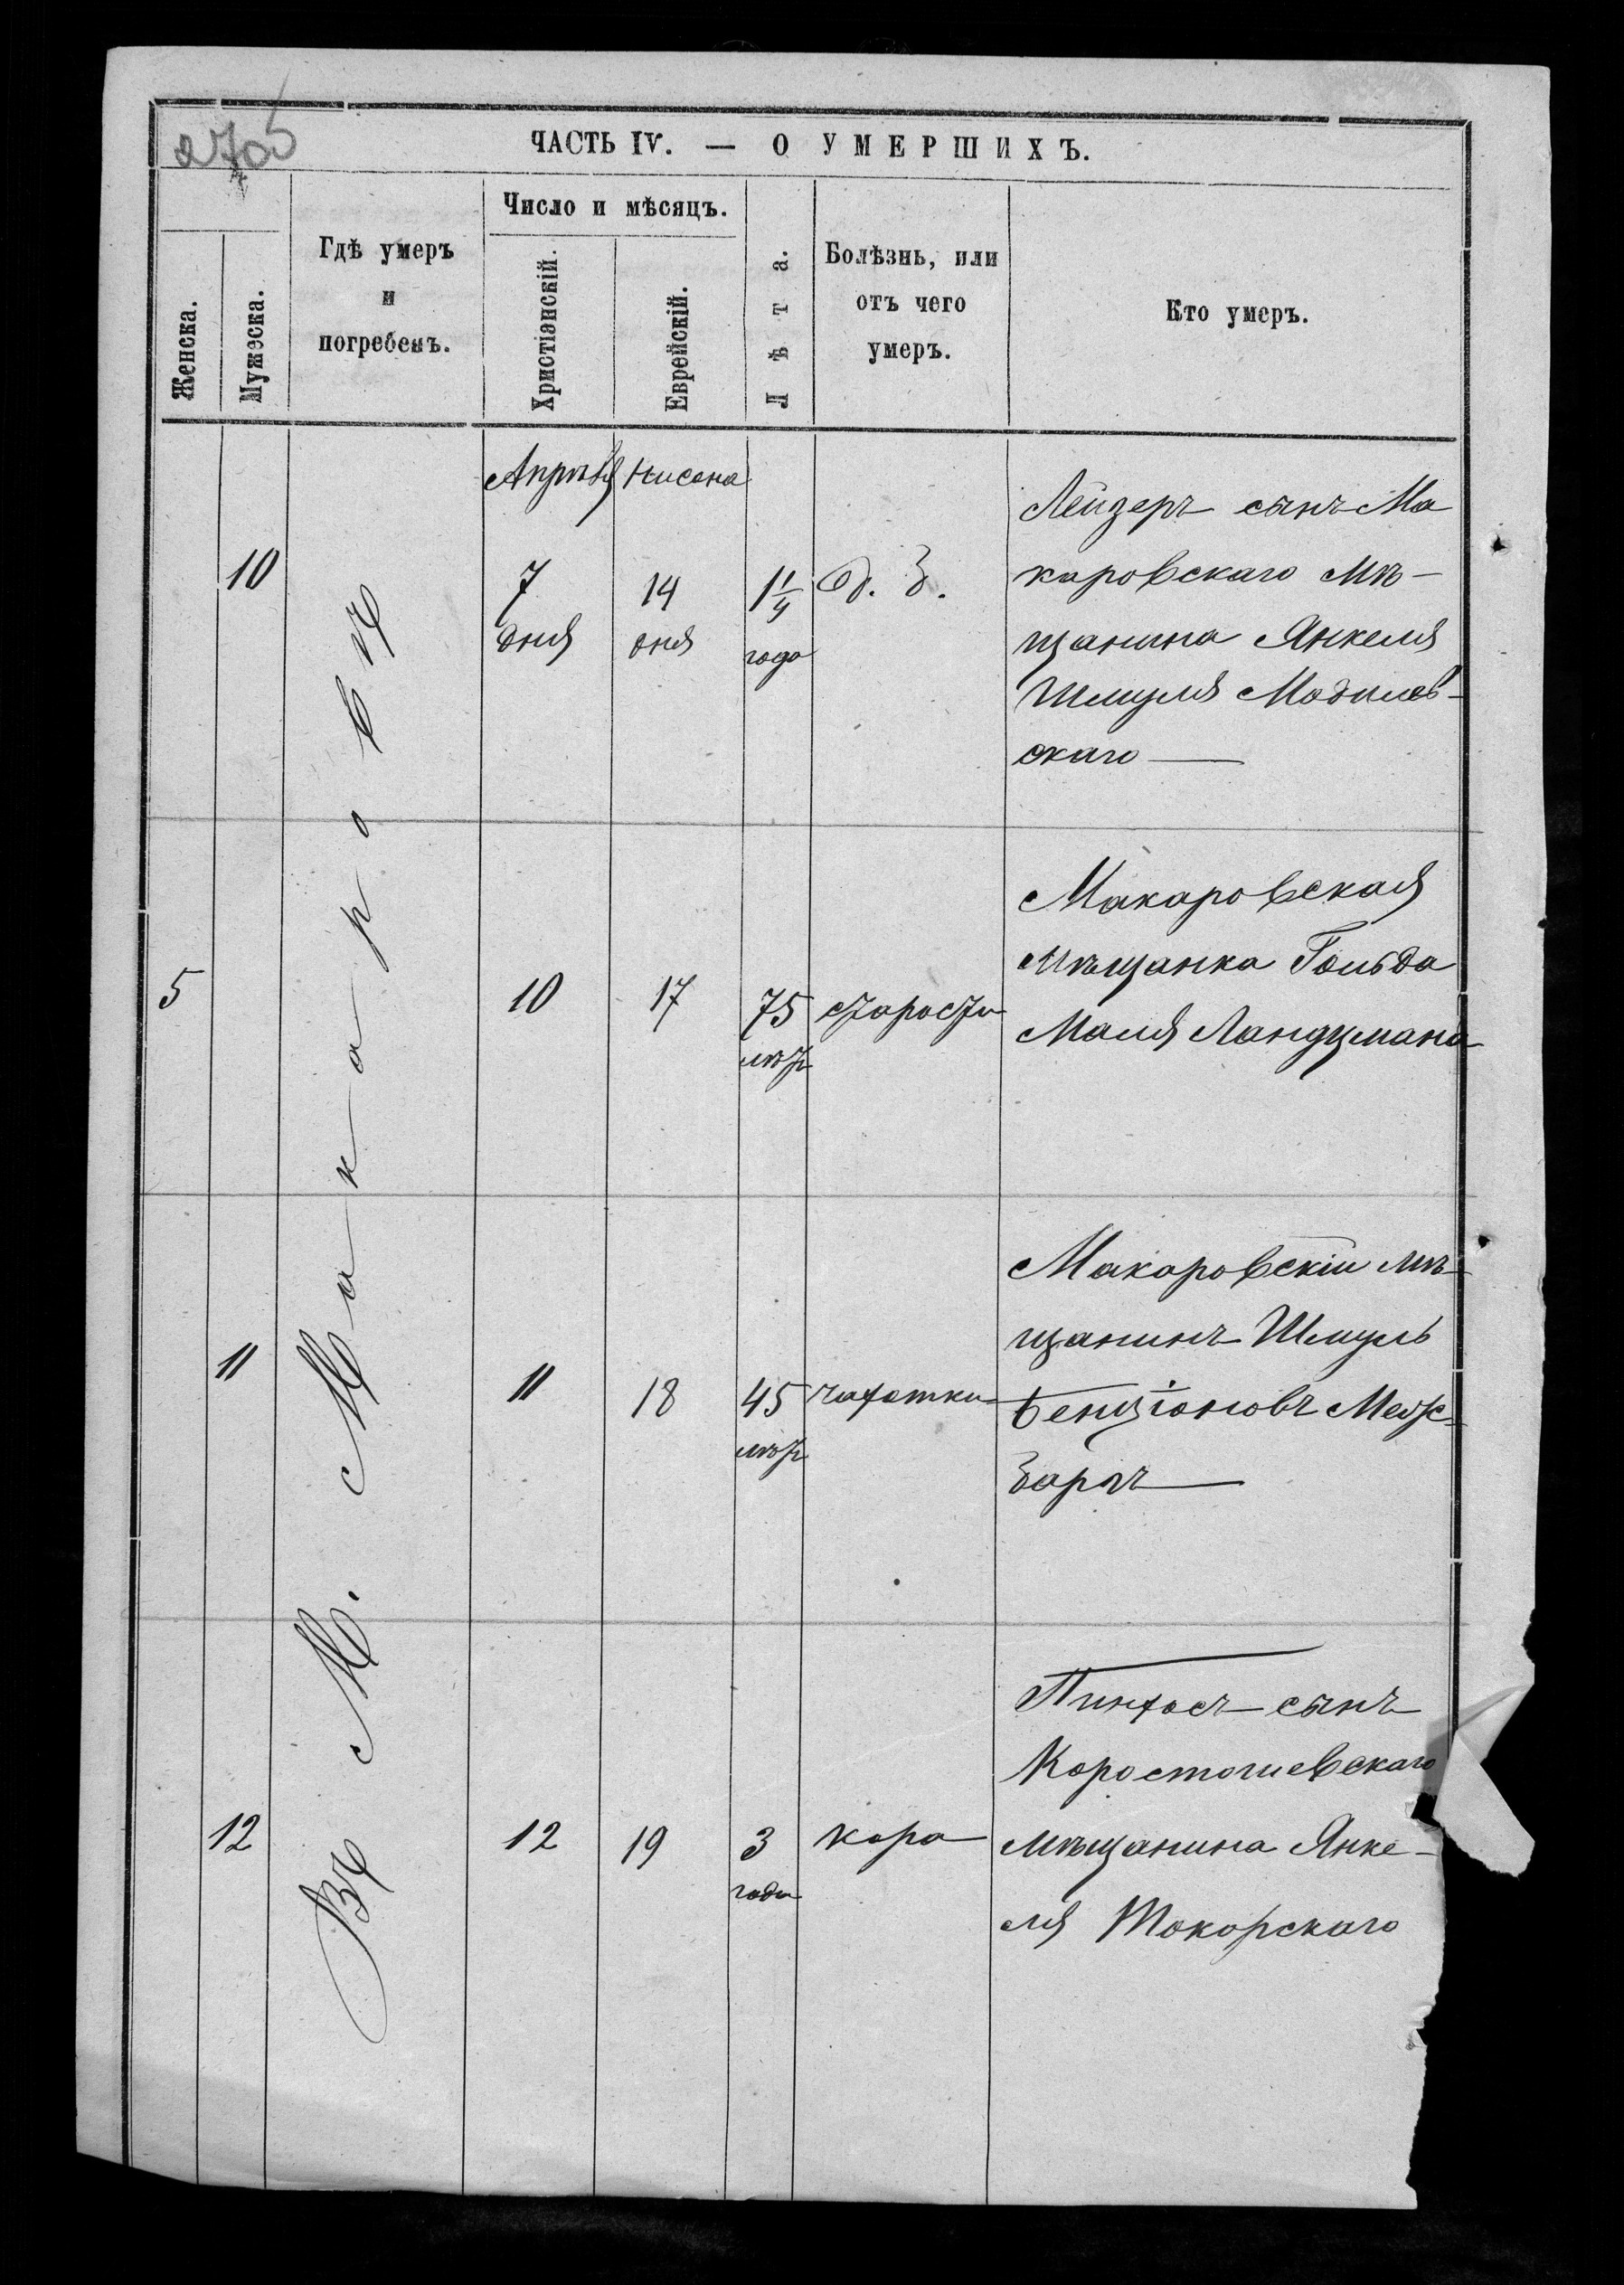 2705
ЧАСТЬ IV. — О УМЕРШИХЪ.
Женска.
Мужеска.
Гдѣ умеръ
и
погребенъ.
Число и мѣсяцъ.
Христіанскій.
Еврейскій.
Лѣта.
Болѣзнь, или
отъ чего
умеръ.
Кто умеръ.
Въ М. Макаровѣ
Апрѣля Нисена
10
7
дня
14
дня
1 1/4
года
Лейзеръ сынъ Ма
каровскаго мѣ-
щанина Янкеля
Шмуля
скаго
5
10
17
75
лѣтъ
старости
Макаровская
мѣщанка Гольда
Маля Ландцмана
11
11
18
45
лѣтъ
чахотки
Макаровскій мѣ-
щанинъ Шмуль
Бенціоновъ
12
12
19
3
года
кора
Пинхасъ сынъ
Коростошевскаго
мѣщанина Янке-
ля Токорскаго